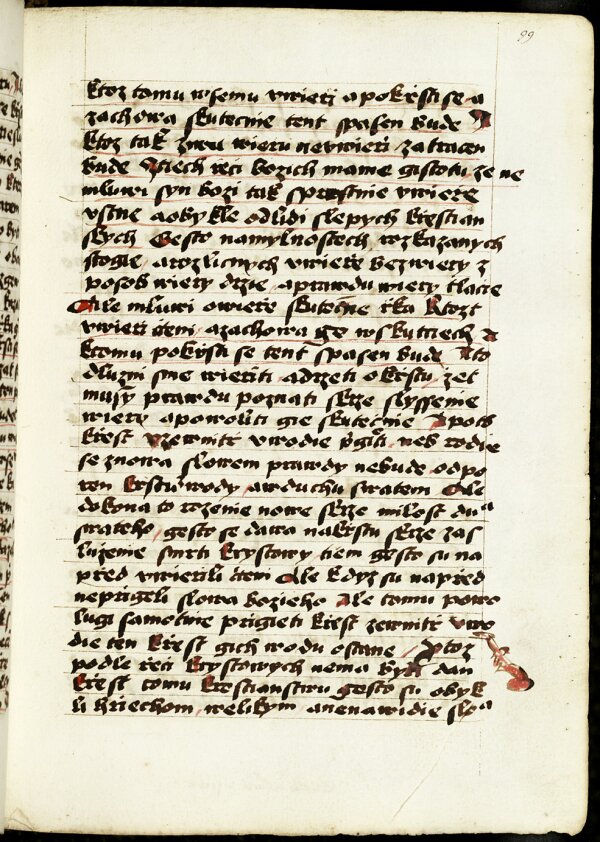 99
ktoz tomu wssemu vwierzi a pokrzti se a
zachowa skutecznie tent spasen bude A
ktoz tak znwu wieru newwierzi zatracen
bude W tiech rzeczi bozich mame gistotu ze ne
mluwi syn bozi tak sprostnie vwierze
vstne a obykle od lidi slepych krzestian
slych Gesto namylnostech rozkazanych
stogie a rozlicznych vwierze bez wiery z
posob wiery drzie a prawdu wiery tlaczie
Ale mluwi o wierze skuteczne rzka Ktozt
vwierzi cztem a zachowa ge w skutciech a
ktomu pokrzti se tent spasen bude A to
dluzni sme wierziti a drzeti o krztu zet
musy prawdu poznati skrze slyssenie
wiery a powoliti gie skutecznie A poch
krzest vzewnitrz vwodie przigiti neb rodie
se znowa slowem prawdy nebude odpo
ren krztu wody a w duchu swatem Ale
dokona to wrzenie nowe skrze milost du
swateho gesto se dawa na krztu skrze zas
luzenie smrti krystowy tiem gesto su na
przed vwierzili cztem Ale kdyz su naprzed
neprzigeli slowa bozieho Ale tomu powo
lugi samotne przigieti krzest zewnitrz vwo
die ten krzest gich wodu ostane Protoz
podle rzeczi krystowych nema byti dan
krzest tomu krzestianstwu gesto su obyk
li hrziechom welikym a nenawidie slowa